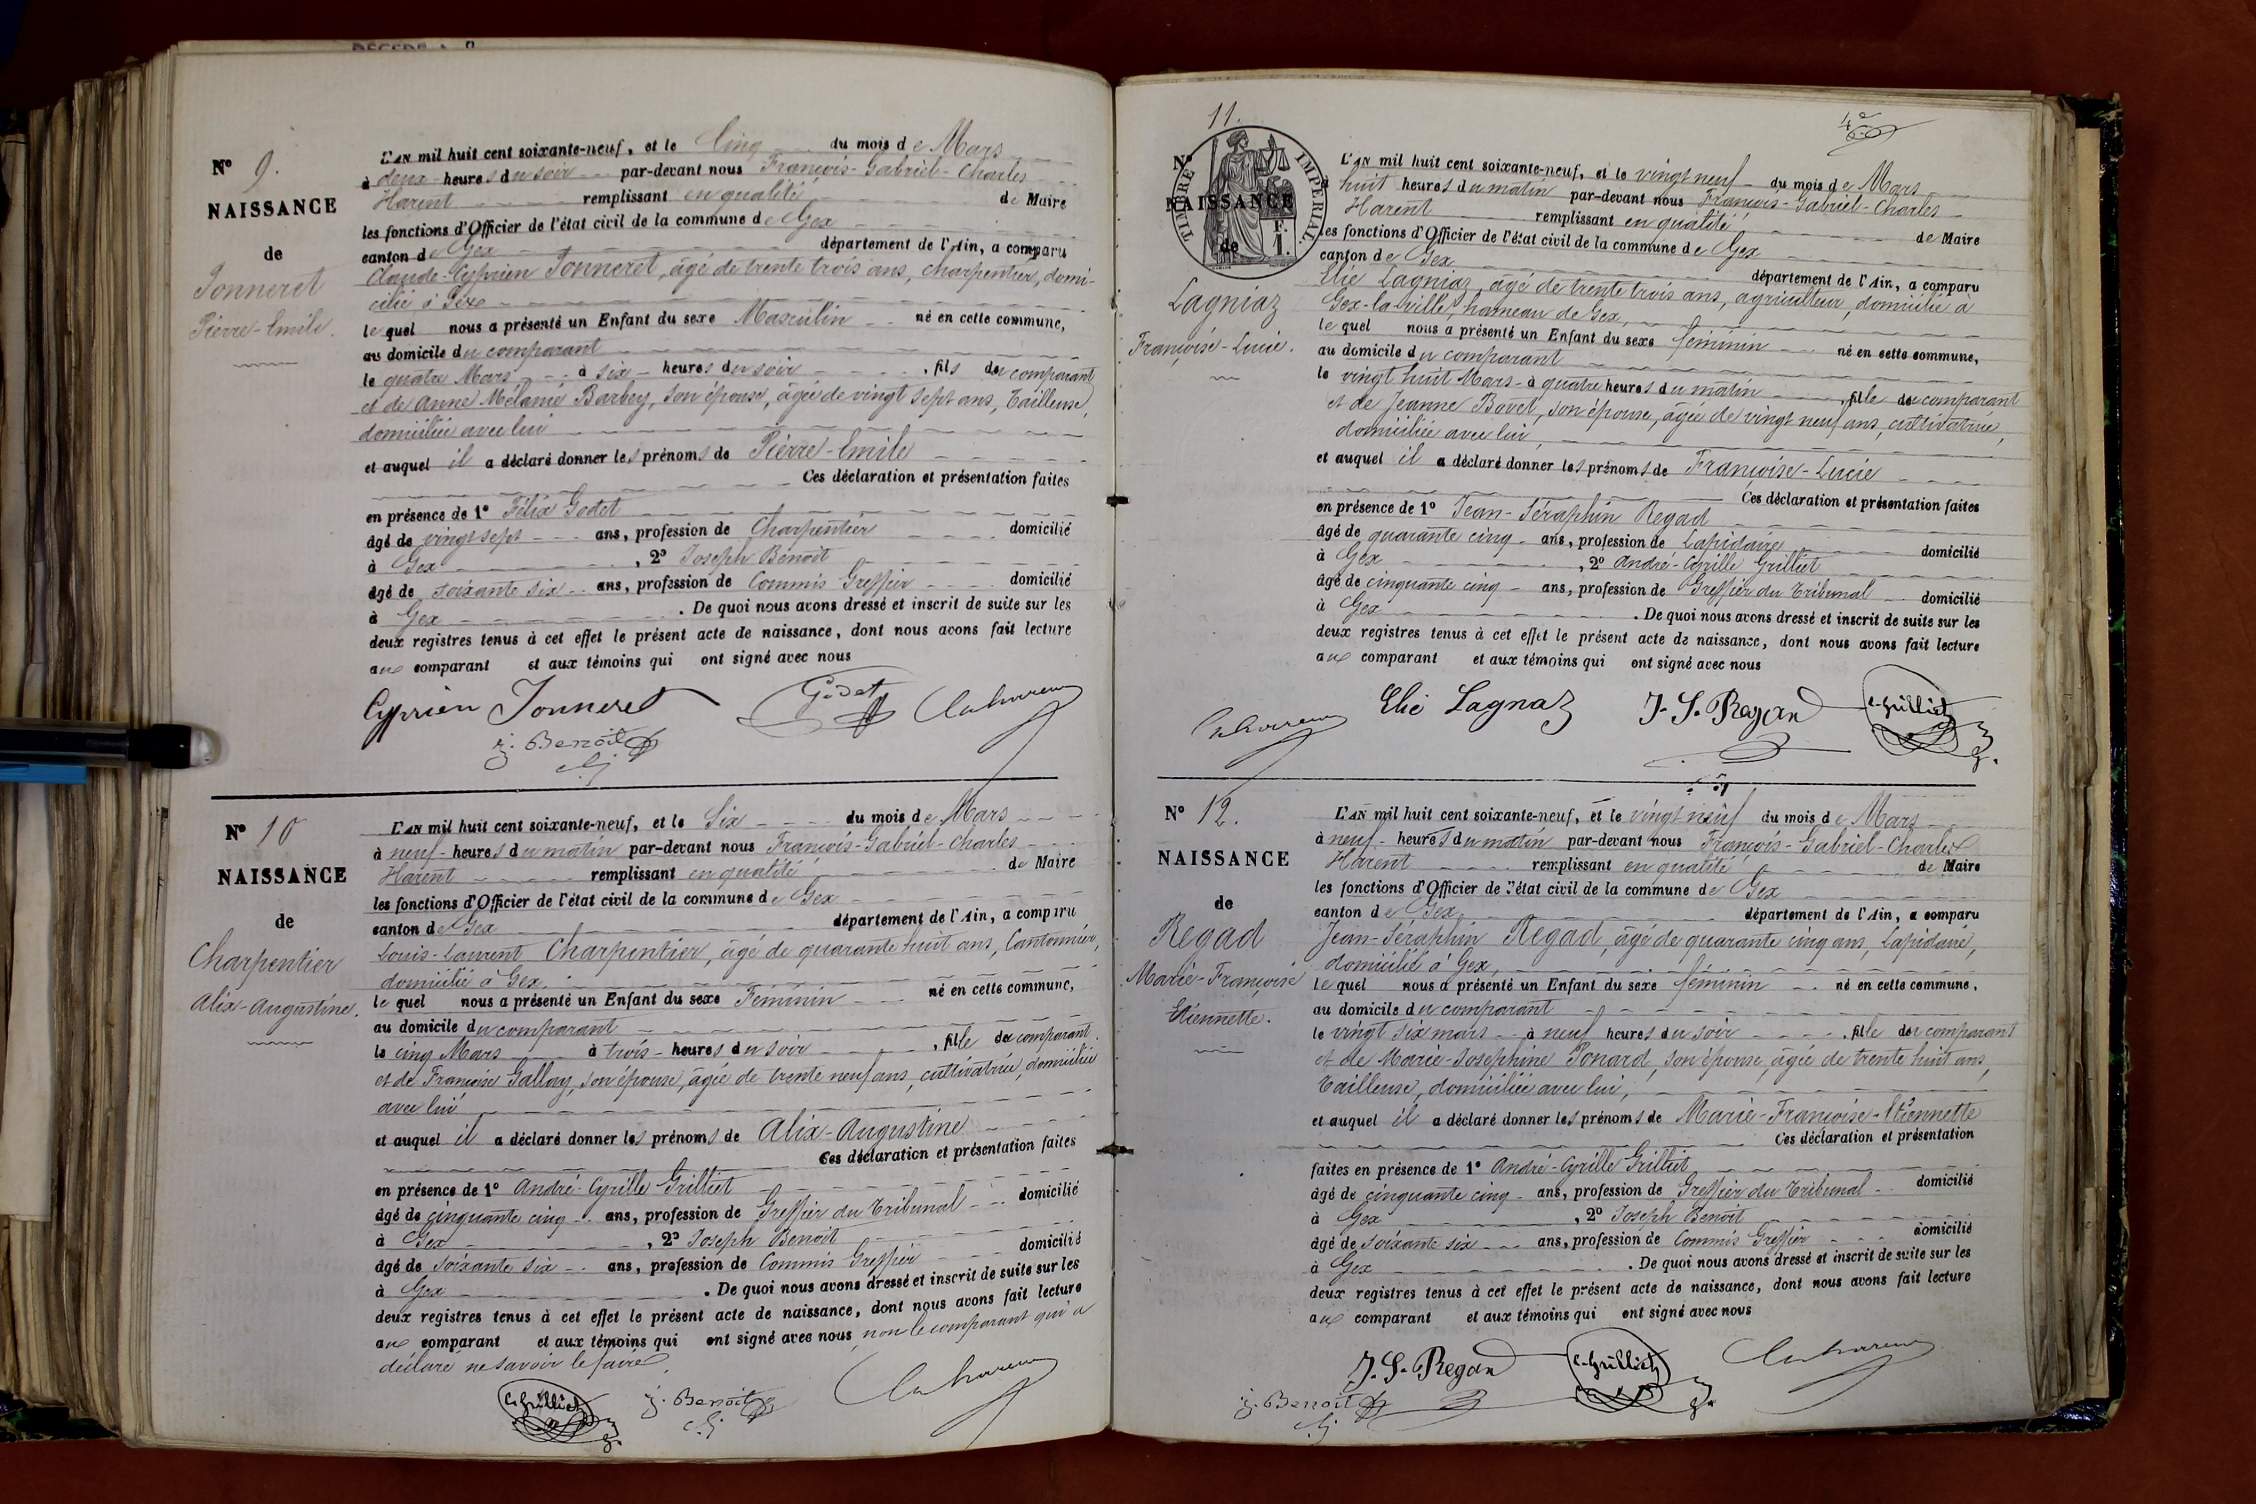 N° 9.
NAISSANCE
de
Jonneret
Pierre-Emile.
L'AN mil huit cent soixante-neuf, et le Cinq du mois de Mars
à deux heures du soir par-devant nous François-Gabriel-Charles
Harent remplissant en qualité de Maire
les fonctions d'Officier de l'état civil de la commune de Gex
canton de Gex département de l'Ain, a comparu
Claude-Cyprien Jonneret, âgé de trente trois ans, charpentier, domi-
cilié à Gex
lequel nous a présenté un Enfant du sexe Masculin né en cette commune,
au domicile du comparant
le quatre Mars à six heures du soir, fils du comparant
et de Anne Mélanie Barbry, son épouse, âgée de vingt sept ans, Tailleuse,
domiciliée avec lui
et auquel il a déclaré donner les prénoms de Pierre-Emile
Ces déclaration et présentation faites
en présence de 1° Félix Godet
âgé de vingt sept ans, profession de Charpentier domicilié
à Gex, 2° Joseph Benoit
âgé de soixante six ans, profession de Commis Greffier domicilié
à Gex. De quoi nous avons dressé et inscrit de suite sur les
deux registres tenus à cet effet le présent acte de naissance, dont nous avons fait lecture
aux comparant et aux témoins qui ont signé avec nous
Cyprien Jonneret Godet
j. Benoit
N° 10
NAISSANCE
de
Charpentier
Alix-Augustine.
L'AN mil huit cent soixante-neuf, et le Six du mois de Mars
à neuf heures du matin par-devant nous François-Gabriel-Charles
Harent remplissant en qualité de Maire
les fonctions d'Officier de l'état civil de la commune de Gex
canton de Gex département de l'Ain, a comparu
Louis-Laurent Charpentier, âgé de quarante huit ans, Cantonnier,
domicilié à Gex.
lequel nous a présenté un Enfant du sexe Féminin né en cette commune,
au domicile du comparant
le cinq Mars à trois heures du soir, fille du comparant
et de Françoise Gallay, son épouse, âgée de trente neuf ans, cultivatrice, domiciliée
avec lui
et auquel il a déclaré donner les prénoms de Alix-Augustine
Ces déclaration et présentation faites
en présence de 1° André-Cyrille Grilliet
âgé de cinquante cinq ans, profession de Greffier du Tribunal domicilié
à Gex, 2° Joseph Benoit
âgé de soixante six ans, profession de Commis Greffier domicilié
à Gex. De quoi nous avons dressé et inscrit de suite sur les
deux registres tenus à cet effet le présent acte de naissance, dont nous avons fait lecture
aux comparant et aux témoins qui ont signé avec nous, non le comparant qui a
déclaré ne savoir le faire
C. Grilliet j. Benoit
11.
N°
TIMBRE IMPERIAL.
F.
1.
NAISSANCE
de
Lagniaz
Françoise-Lucie.
L'AN mil huit cent soixante-neuf, et le vingt neuf du mois de Mars
à huit heures du matin par-devant nous François-Gabriel-Charles
Harent remplissant en qualité de Maire
les fonctions d'Officier de l'état civil de la commune de Gex
canton de Gex département de l'Ain, a comparu
Elie Lagniaz, âgé de trente trois ans, agriculteur, domicilié à
Gex-la-ville, hameau de Gex,
lequel nous a présenté un Enfant du sexe féminin né en cette commune,
au domicile du comparant
le vingt huit Mars à quatre heures du matin, fille du comparant
et de Jeanne Bovet, son épouse, âgée de vingt neuf ans, cultivatrice,
domiciliée avec lui,
et auquel il a déclaré donner les prénoms de Françoise-Lucie
Ces déclaration et présentation faites
en présence de 1° Jean-Séraphin Regad
âgé de quarante cinq ans, profession de Lapidaire domicilié
à Gex, 2° André-Cyrille Grilliet
âgé de cinquante cinq ans, profession de Greffier du Tribunal domicilié
à Gex. De quoi nous avons dressé et inscrit de suite sur les
deux registres tenus à cet effet le présent acte de naissance, dont nous avons fait lecture
aux comparant et aux témoins qui ont signé avec nous
Elie Lagnaz J. S. Regad C. Grilliet
N° 12.
NAISSANCE
de
Regad
Marie-Françoise
Etiennette.
L'AN mil huit cent soixante-neuf, et le vingt neuf du mois de Mars
à neuf heures du matin par-devant nous François-Gabriel-Charles
Harent remplissant en qualité de Maire
les fonctions d'Officier de l'état civil de la commune de Gex
canton de Gex département de l'Ain, a comparu
Jean-Séraphin Regad, âgé de quarante cinq ans, Lapidaire,
domicilié à Gex,
lequel nous a présenté un Enfant du sexe féminin né en cette commune,
au domicile du comparant
le vingt six mars à neuf heures du soir, fille du comparant
et de Marie-Josephine Ponard, son épouse, âgée de trente huit ans,
Tailleuse, domiciliée avec lui,
et auquel il a déclaré donner les prénoms de Marie-Françoise-Etiennette
Ces déclaration et présentation
faites en présence de 1° André-Cyrille Grilliet
âgé de cinquante cinq ans, profession de Greffier du Tribunal domicilié
à Gex, 2° Joseph Benoit
âgé de soixante six ans, profession de Commis Greffier domicilié
à Gex. De quoi nous avons dressé et inscrit de suite sur les
deux registres tenus à cet effet le présent acte de naissance, dont nous avons fait lecture
aux comparant et aux témoins qui ont signé avec nous
J. S. Regad C. Grilliet
j. Benoit